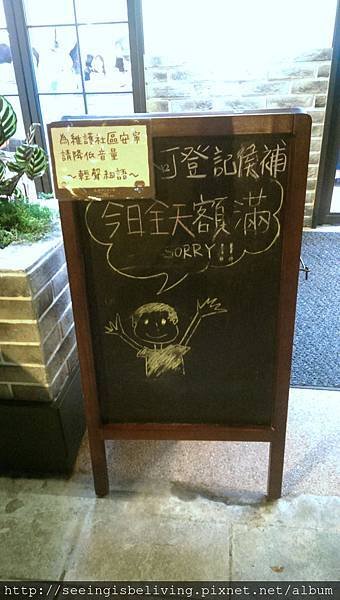 為維護社區安寧
請降低音量
～輕聲細語～
可登記候補
今日全天額滿
SORRY!!
http://seeingisbeliving.pixnet.net/album